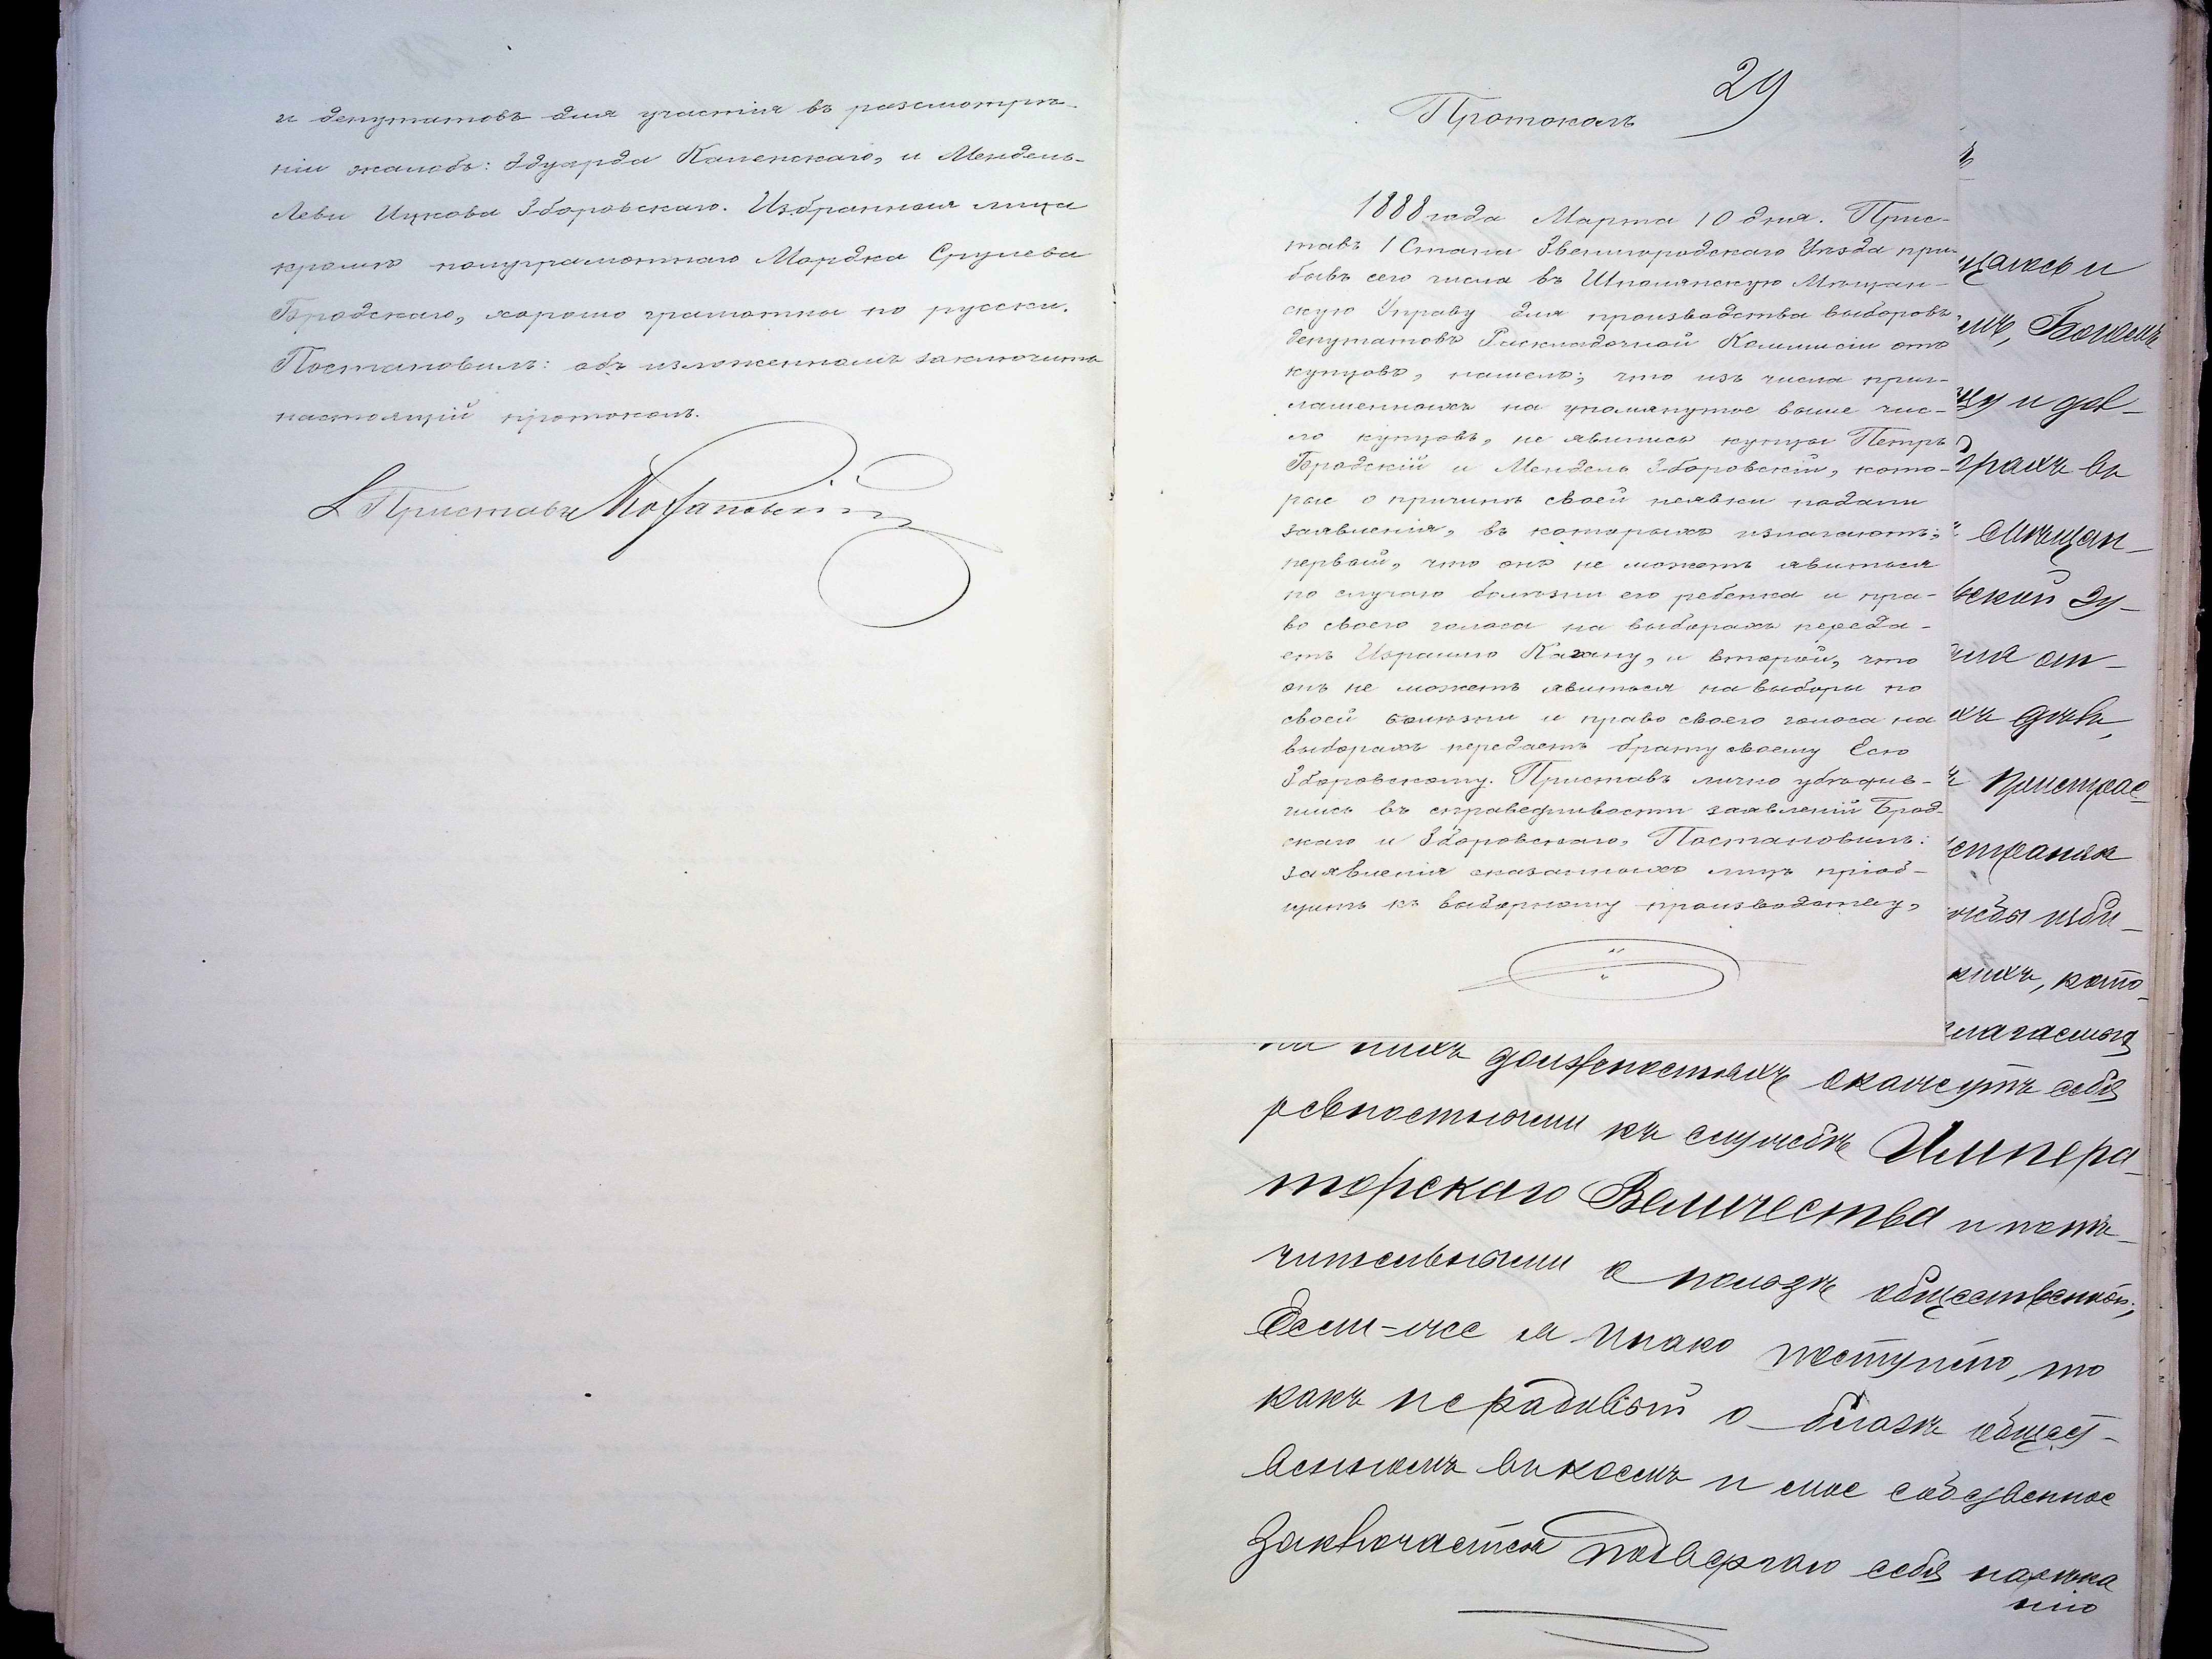 и депутатовъ для участія въ разсмотрѣ-
ніи жалобъ: Эдуарда Каменскаго, и Мендель-
Леви Ицкова Зборовскаго. Избранныя лица
кромѣ полуграмотнаго Мордка Срулева
Бродскаго, хорошо грамотны по русски.
Постановилъ: объ изложенномъ заключить
настоящій протоколъ.
Приставъ
29
Протоколъ
1888 года Марта 10 дня. Прис-
тавъ 1 Стана Звенигородскаго Уѣзда при-
бывъ сего числа въ Шполянскую Мѣщан-
скую Управу для производства выборовъ
депутатовъ Раскладочной Коммисіи отъ
купцовъ, нашелъ; что изъ числа приг-
лашенныхъ на упомянутое выше чис-
ло купцовъ, не явились купцы Петръ
Бродскій и Мендель Зборовскій, кото-
рые о причинѣ своей неявки подали
заявленія, въ которыхъ излагаютъ;
первый, что онъ не можетъ явиться
по случаю болѣзни его ребенка и пра-
во своего голоса на выборахъ переда-
етъ Израилю Кагану, и второй, что
онъ не можетъ явиться на выборы по
своей болѣзни и право своего голоса на
выборахъ передаетъ брату своему Есю
Зборовскому. Приставъ лично убѣдив-
шись въ справедливости заявленій Брод-
скаго и Зборовскаго, Постановилъ:
заявленія сказанныхъ лицъ пріоб-
щить къ выборному производству,
щаюсь и
емъ, Богомъ
цу и дов-
грахъ въ
Мѣщан-
вской Зу-
ия от-
ахъ дѣвъ,
Пристрас-
страняя
жбы изби-
кихъ, кото-
лагаемыя
на нихъ должностяхъ окажутъ себя
ревностными къ службѣ Импера-
торскаго Величества и попе-
чительными о пользѣ общественной;
Если-же я инако поступлю, то
какъ нерадивый о благѣ общест-
венномъ въ коемъ и мое собственное
Заключается Подвергаю себя нарѣка
нію